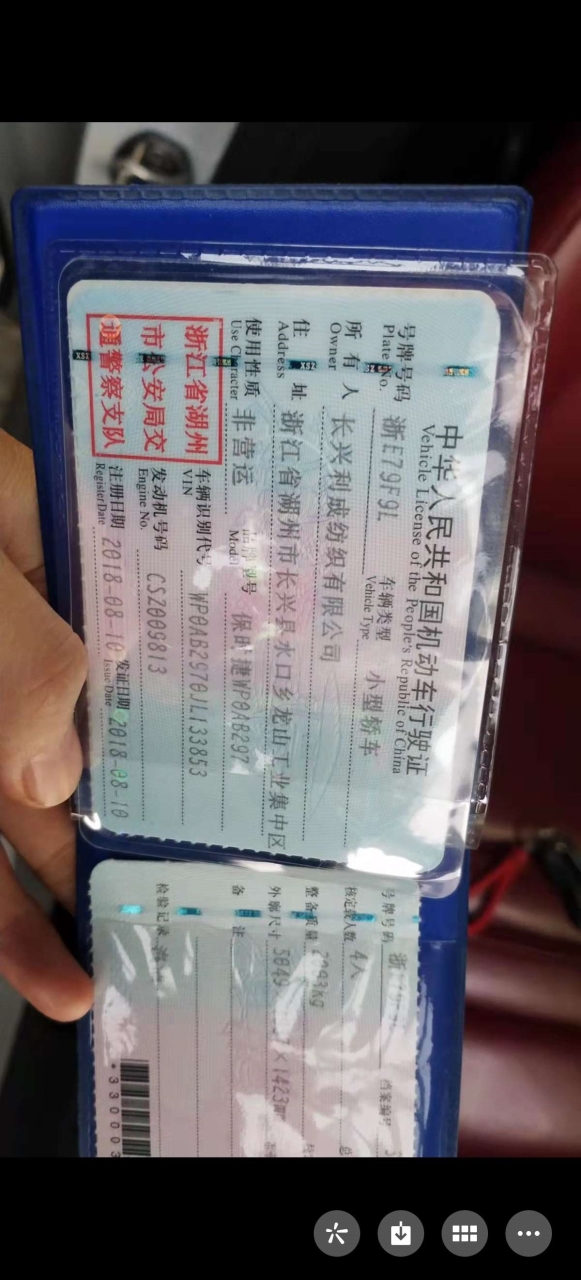 中华人民共和国机动车行驶证
Vehicle License of the People's Republic of China
号牌号码 浙E79F9L 车辆类型 小型轿车
Plate No. Vehicle Type
所有人 长兴利成纺织有限公司
Owner
住址 浙江省湖州市长兴县水口乡龙山工业集中区
Address
使用性质 非营运 品牌型号 保时捷WP0AB297
Use Character Model
浙江省湖州
市公安局交
通警察支队
车辆识别代号 WP0AB2970JL133853
VIN
发动机号码 CS2009813
Engine No.
注册日期 2018-08-10 发证日期 2018-08-10
Register Date Issue Date
号牌号码 浙 档案编号
核定载人数 4人 总
整备质量 2093kg
外廓尺寸 5049 ×1423
备注
检验记录
*330003